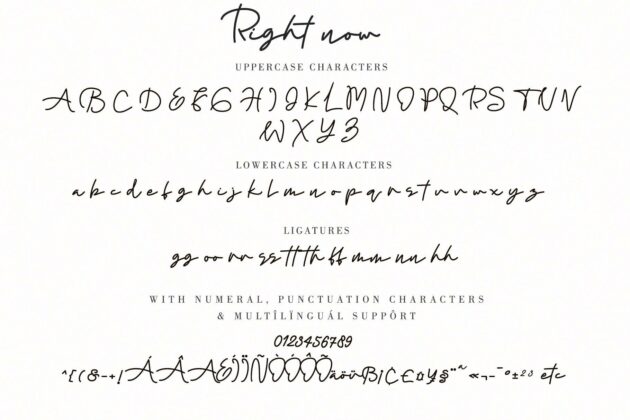 Right now
UPPERCASE CHARACTERS
A B C D E F G H I J K L M N O P Q R S T U V
W X Y Z
LOWERCASE CHARACTERS
a b c d e f g h i j k l m n o p q r s t u v w x y z
LIGATURES
gg oo rr ss tt th ff mm nn hh
WITH NUMERAL, PUNCTUATION CHARACTERS
& MULTÎLÏNGUÁL SUPPÔRT
0123456789
etc